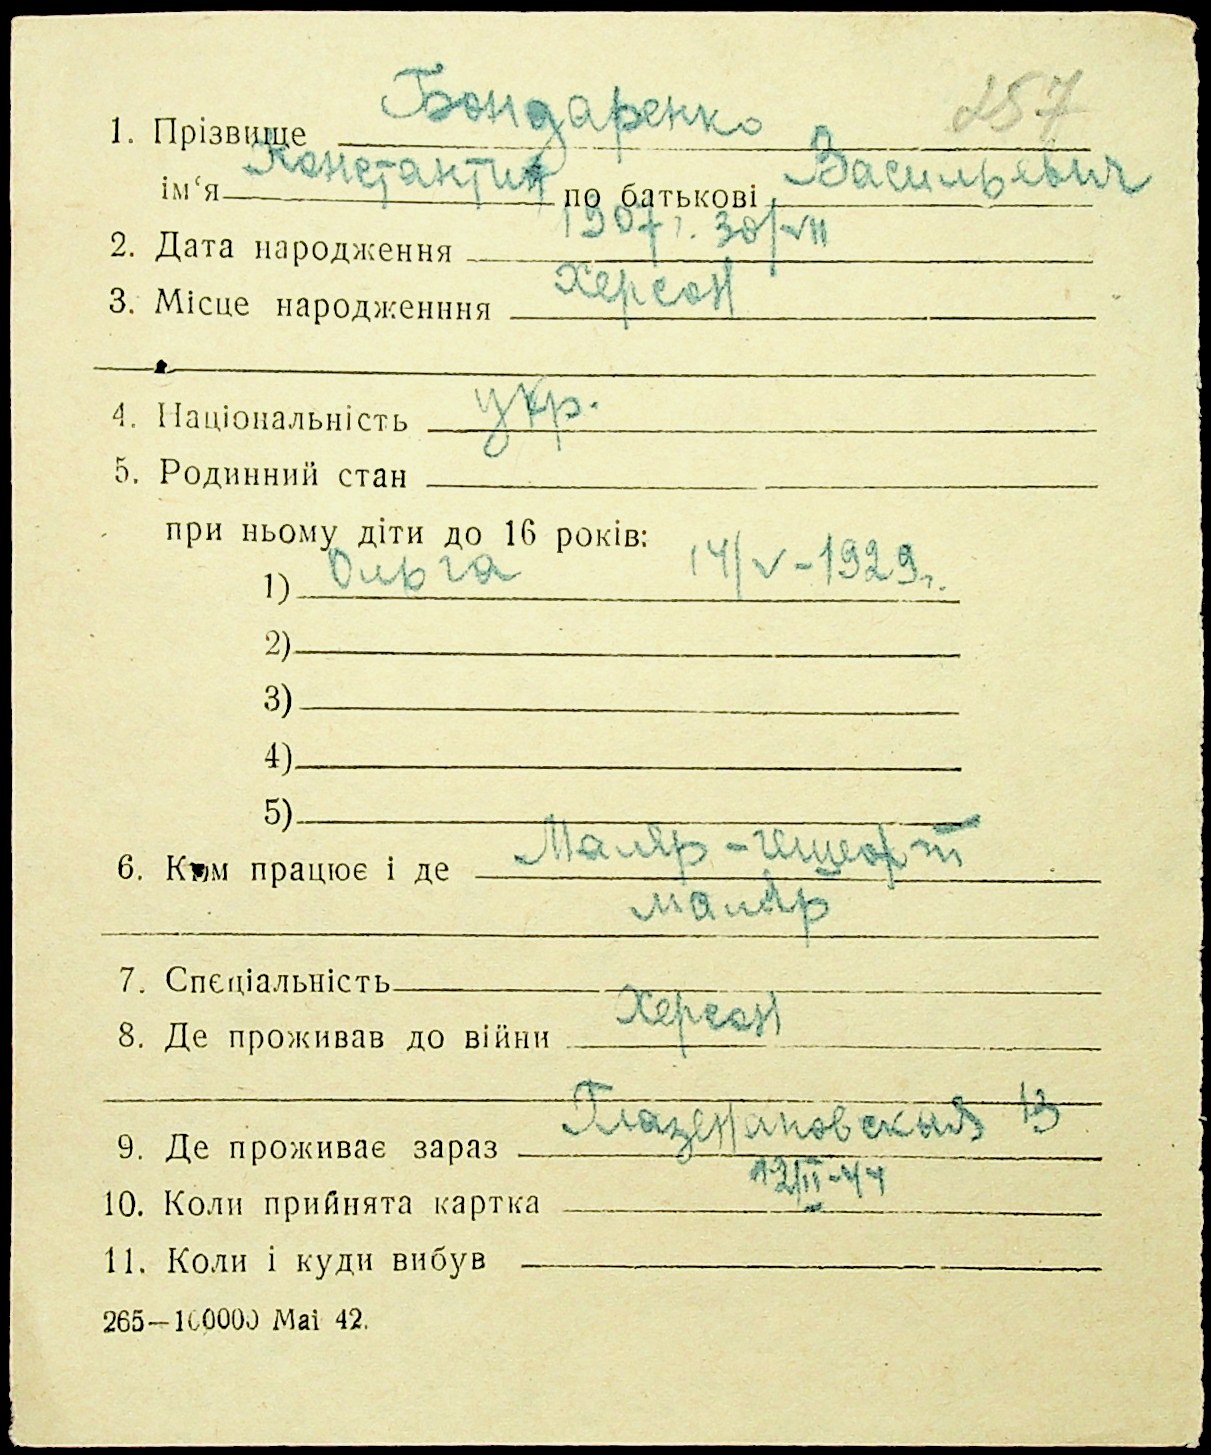 257
1. Прізвище Бондаренко
ім‘я Константин по батькові Васильевич
2. Дата народження 1907 г. 30/VII
3. Місце народженння Херсон
4. Національність укр.
5. Родинний стан
при ньому діти до 16 років:
1) Ольга 14/V-1929г.
2)
3)
4)
5)
6. Ким працює і де Маляр-
маляр
7. Спеціальність
8. Де проживав до війни Херсон
9. Де проживає зараз 13
10. Коли прийнята картка 12/II-44
11. Коли і куди вибув
265—100000 Маі 42.